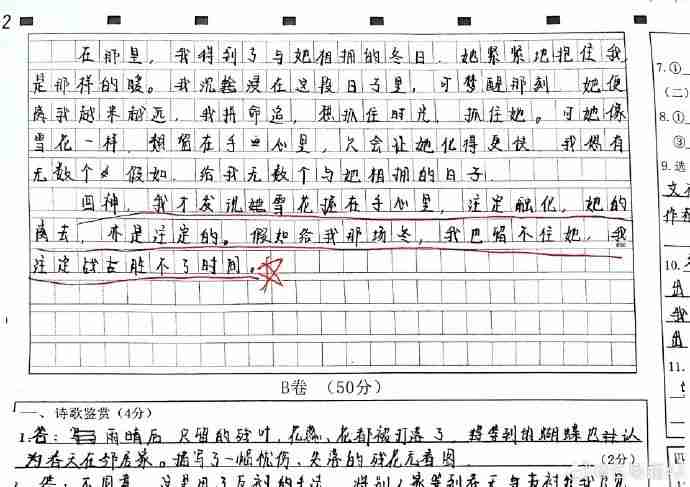 2
在那里，我得到了与她相拥的冬日，她紧紧地抱住我
是那样的暖。我沉浸在这段日子里，可梦醒那刻，她便
离我越来越远，我拼命追，想抓住时光，抓住她。可她像
雪花一样，想留在手心里，只会让她化得更快，我想有
无数个假如，给我无数个与她相拥的日子。
回神，我才发现她雪花握在手心里，注定融化，她的
离去，亦是注定的。假如给我那场冬，我也留不住她，我
注定战胜不了时间。
B卷 (50分)
一、诗歌鉴赏 (4分)
1.答：雨晴后只留的残叶，花蕊、花都被打落了，将等到的蝴蝶也
为春天在邻居家。描写了一幅忧伤、失落的残花无春图。 (2分)
7.①
(二)
8.①
③
9.选
10.
出
我
出
11.